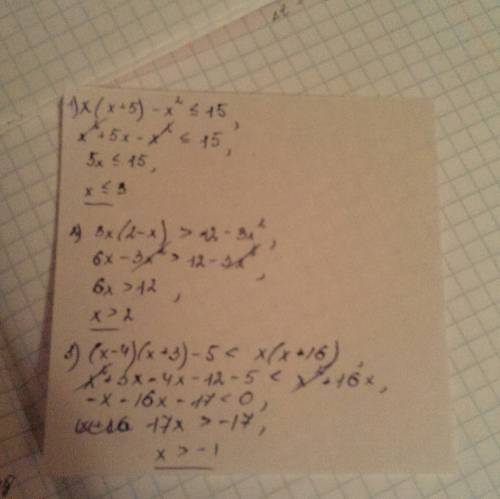 1) x(x+5) - x² ≤ 15,
x² + 5x - x² ≤ 15,
5x ≤ 15,
x ≤ 3
2) 3x(2-x) > 12 - 3x²,
6x - 3x² > 12 - 3x²,
6x > 12,
x > 2
3) (x-4)(x+3) - 5 < x(x+16),
x² + 3x - 4x - 12 - 5 < x² + 16x,
-x - 16x - 17 < 0,
17x > -17,
x > -1